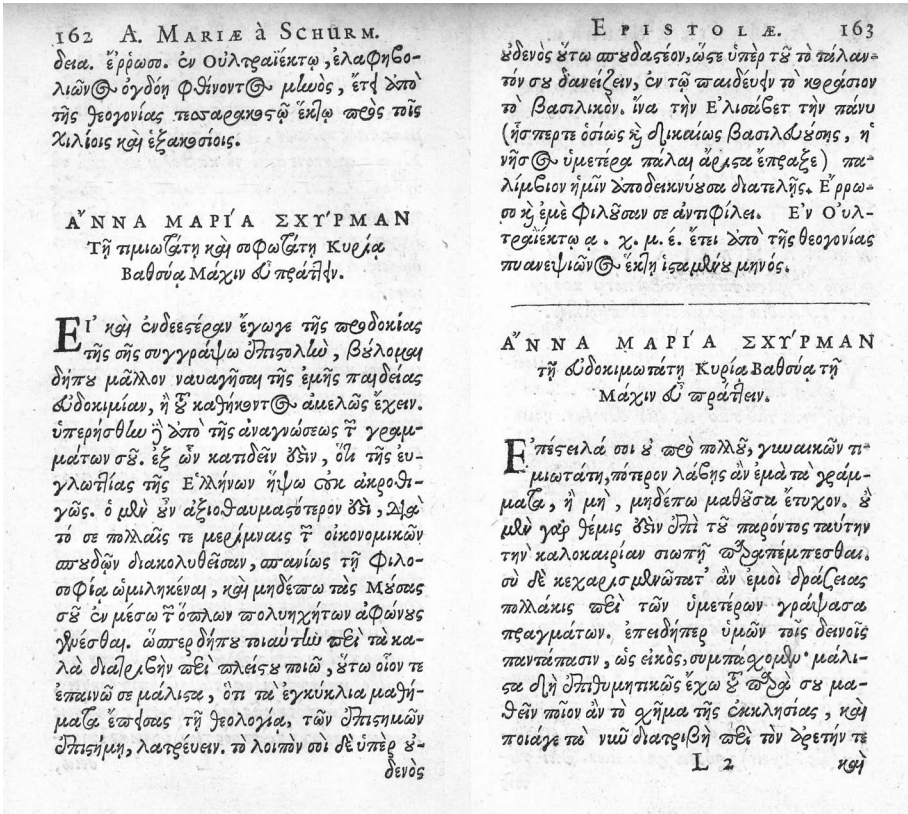 162 A. MARIÆ à SCHURM.
δεια. ἔρρωσο. ἐν Οὐλτραϊέκτῳ, ἐλαφηβο-
λιῶνος ὀγδόη φθίνοντος μηνὸς, ἔτει ἀπὸ
τῆς θεογονίας τεσσαρακοστῷ ἕκτῳ πρὸς τοῖς
χιλίοις καὶ ἑξακοσίοις.
ἌΝΝΑ ΜΑΡΊΑ ΣΧΥΎΡΜΑΝ
Τῇ τιμιωτάτῃ καὶ σοφωτάτῃ Κυρίᾳ
Βαθσύᾳ Μάχιν εὖ πράττειν.
Εἰ καὶ ἐνδεεστέραν ἔγωγε τῆς προδοκίας
τῆς σῆς συγγράψω ἐπιστολὴν, βούλομαι
δήπου μᾶλλον ναυαγῆσαι τῆς ἐμῆς παιδείας
εὐδοκιμίαν, ἢ τοῦ καθήκοντος ἀμελῶς ἔχειν.
ὑπερήσθην γὰρ ἀπὸ τῆς ἀναγνώσεως τῶν γραμ-
μάτων σοῦ. ἐξ ὧν κατιδεῖν οὖσιν, ὅτι τῆς ἐυ-
γλωττίας τῆς Ἑλλήνων ἥψω οὐκ ἀκροθι-
γῶς. ὁ μὲν οὖν ἀξιοθαυμαστότερον ἐστὶ, διὰ
τό σε πολλαῖς τε μερίμναις τῶν οἰκονομικῶν
σπουδῶν διακολυθεῖσαν, σπανίως τῇ φιλο-
σοφίᾳ ὡμιληκέναι, καὶ μηδέπω τὰς Μούσας
σοῦ ἐν μέσω τῶν ὅπλων πολυηχήτων ἀφώνους
γενέσθαι. ὥσπερ δήπου τοιαύτην περὶ τὰ κα-
λὰ διατριβὴν περὶ πλείστου ποιῶ, οὕτω οἷον τε
ἐπαινῶ σε μάλιστα, ὅτι τὰ ἐγκύκλια μαθή-
ματα ἔπεισας τῇ θεολογίᾳ, τῶν ἐπιστημῶν
ἐπιστήμῃ, λατρεύειν. τὸ λοιπόν σοι δὲ ὑπὲρ οὐ-
δενὸς
EPISTOLÆ. 163
οὐδενὸς οὕτω σπουδαστέον, ὥστε ὑπὲρ τοῦ τὸ τάλαν-
τόν σου δανείζειν, ἐν τῷ παιδεύειν τὸ κοράσιον
τὸ βασιλικὸν. ἵνα τὴν Ἐλισάβετ τὴν πάνυ
(ἧσπερτε ὁσίως καὶ δικαίως βασιλευούσης, ἡ
νῆσος ὑμετέρα πάλαι ἄριστα ἔπραξε) πα-
λίμβιον ἡμῖν ἀποδεικνύουσα διατελῇς. Ἔρρω-
σο καὶ ἐμὲ φιλοῦσαν σε ἀντιφίλει. Ἐν Οὐλ-
τραϊέκτῳ α. χ. μ. έ. ἔτει ἀπὸ τῆς θεογονίας
πυανεψιῶνος ἕκτῃ ἱσταμένου μηνός.
ἌΝΝΑ ΜΑΡΊΑ ΣΧΥΎΡΜΑΝ
τῇ εὐδοκιμωτάτῃ Κυρίᾳ Βαθσύᾳ τῇ
Μάχιν εὖ πράττειν.
Ἐπέστειλά σοι οὐ πρὸ πολλοῦ, γυναικῶν τι-
μιωτάτη, πότερον λάβῃς ἂν ἐμὰ τὰ γράμ-
ματα, ἢ μὴ, μηδέπω μαθοῦσα ἔτυχον. οὐ
μὲν γὰρ θέμις οὖσιν ἐπὶ τοῦ παρόντος ταύτην
τὴν καλοκαιρίαν σιωπῇ παραπέμπεσθαι.
σὺ δὲ κεχαρισμένωτατ' ἂν ἐμοὶ δράζειας
πολλάκις περὶ τῶν ὑμετέρων γράψασα
πραγμάτων. ἐπειδήπερ ὑμῶν τοῖς δεινοῖς
παντάπασιν, ὡς εἰκὸς, συμπάσχομεν· μάλι-
στα δὴ ἐπιθυμητικῶς ἔχω τοῦ παρὰ σου μα-
θεῖν ποῖον ἂν τὸ σχῆμα τῆς ἐκκλησίας, καὶ
ποιάγε τὰ νῦν διατριβὴ περὶ τὸν ἀρετήν τε
L 2 καὶ